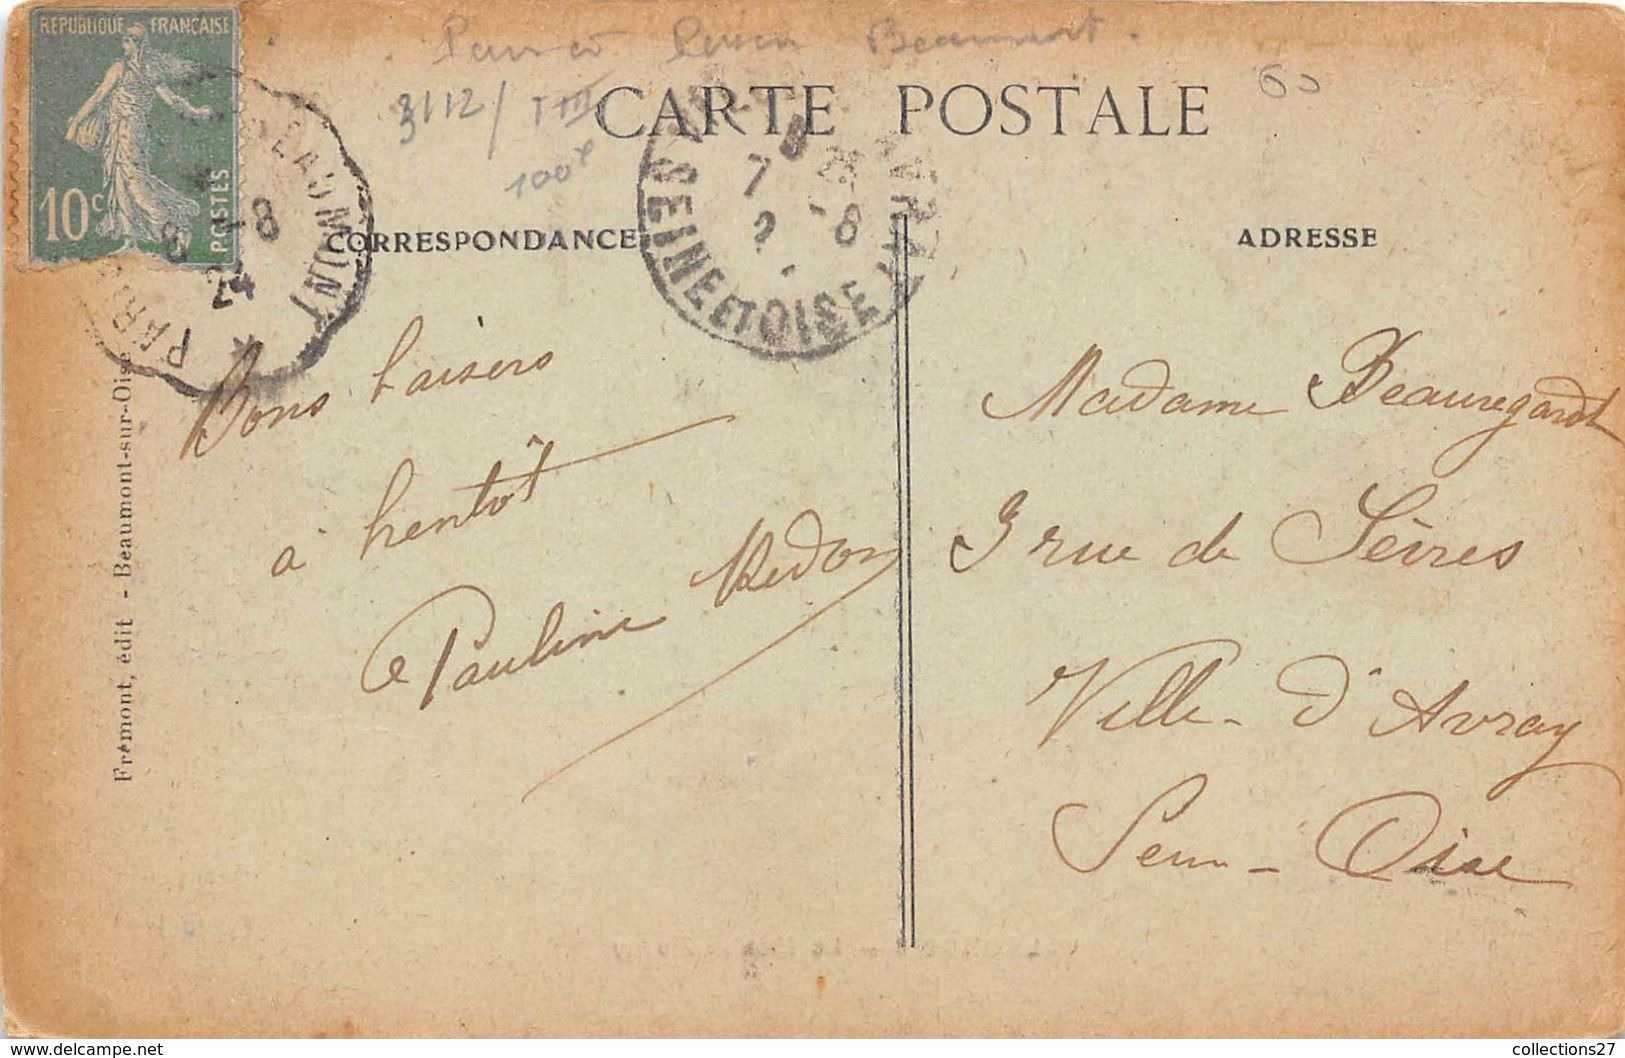 RÉPUBLIQUE FRANÇAISE
10c
POSTES
Beaumont.
3112/ III
100
60
CARTE POSTALE
CORRESPONDANCE
ADRESSE
BEAUMONT
-8
24
7
-8
SEINE ET OISE
Bons baisers
à bientôt
Pauline Redon
Madame Beauregardt
3 rue de Sèvres
Ville-d'Avray
Seine-Oise
Frémont, édit - Beaumont-sur-Oise
collections27